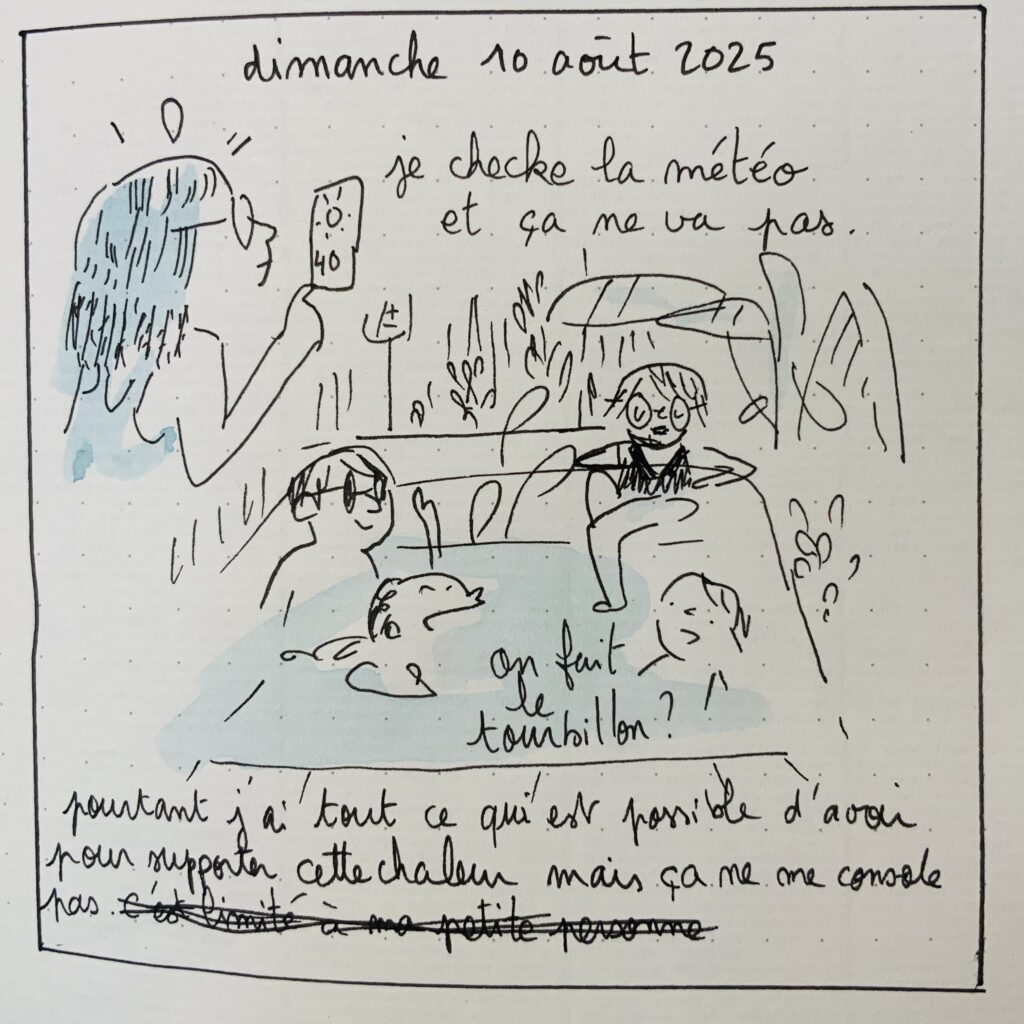 dimanche 10 août 2025
je checke la météo
et ça ne va pas.
40
on fait
le
tourbillon ?
pourtant j'ai tout ce qui est possible d'avoir
pour supporter cette chaleur mais ça ne me console
pas. c'est limité à ma petite personne